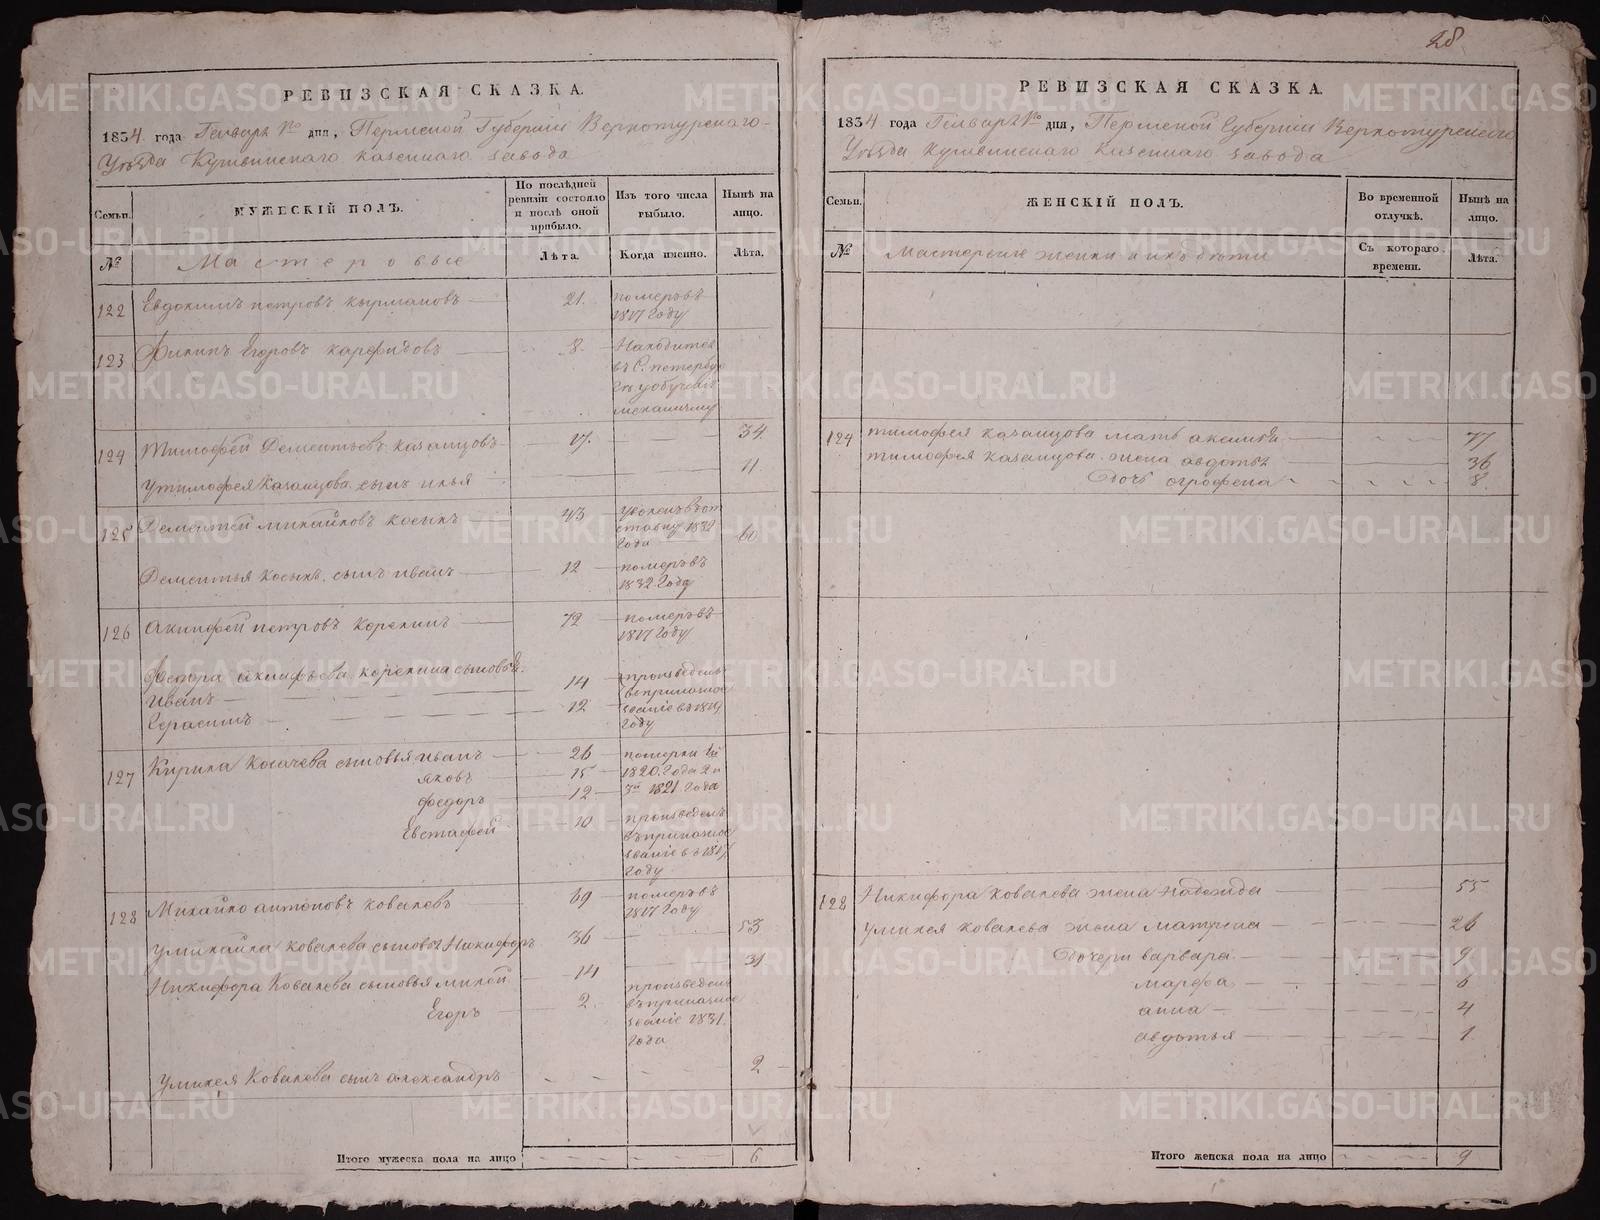 28
РЕВИЗСКАЯ СКАЗКА.
1834 года Генваря дня, Пермской Губернiи Верхотурскаго
Уѣзда Кушвинскаго казеннаго завода
Семьи.
МУЖЕСКІЙ ПОЛЪ.
По послѣдней ревизіи состояло и послѣ оной прибыло.
Изъ того числа выбыло.
Нынѣ на лицо.
№
Мастеровые
Лѣта.
Когда именно.
Лѣта.
122 Евдокимъ петровъ 21. померъ въ
1817 Году
123 Филипъ Егоровъ карфидовъ 8. Находится
въ С. петербур
механичму
124 Тимофей Дементьевъ казанцовъ 17. 34.
Утимофея Казанцова сынъ илья 11.
125 Дементей михайловъ косыхъ 43 уволенъ вот
ставку 1832
Года 60
Дементья косыхъ сынъ иванъ 12 померъ въ
1832 Года
126 Акинфей петровъ корекинъ 72 померъ въ
1817 Году
Федора акинфьева корекина сыновья
иванъ 14 произведены
Герасимъ 12 званіе въ 1819
Году
127 Кирила Косачева сыновья иванъ 26 померли 1й
яковъ 15 1820. Года 2й
федоръ 12 3й 1821 Года
Евстафей 10 произведенъ
званіе въ 1817
Году
128 Михайло антоновъ ковалевъ 69 померъ въ
1817 Году
Умихайла ковалева сыновья Никифоръ 36 53
Никифора Ковалева сыновья михей 14 31
Егоръ 2 произведенъ
званіе 1831.
Года
Умихея Ковалева сынъ александръ 2
Итого мужеска пола на лицо 6
РЕВИЗСКАЯ СКАЗКА.
1834 года Генваря дня, Пермской Губернiи Верхотурскаго
Уѣзда Кушвинскаго Казеннаго завода
Семьи.
ЖЕНСКІЙ ПОЛЪ.
Во временной отлучкѣ.
Нынѣ на лицо.
№
Мастерскіе жены и ихъ дѣти
Съ котораго времени.
Лѣта.
124 тимофея казанцова мать 77
тимофея казанцова жена авдотья 36
Дочь огрофена 8.
128 Никифора Ковалева жена надежда 55
умихея ковалева жена матрена 26
Дочери варвара 9
марфа 6
анна 4
авдотья 1
Итого женска пола на лицо 9
METRIKI.GASO-URAL.RU